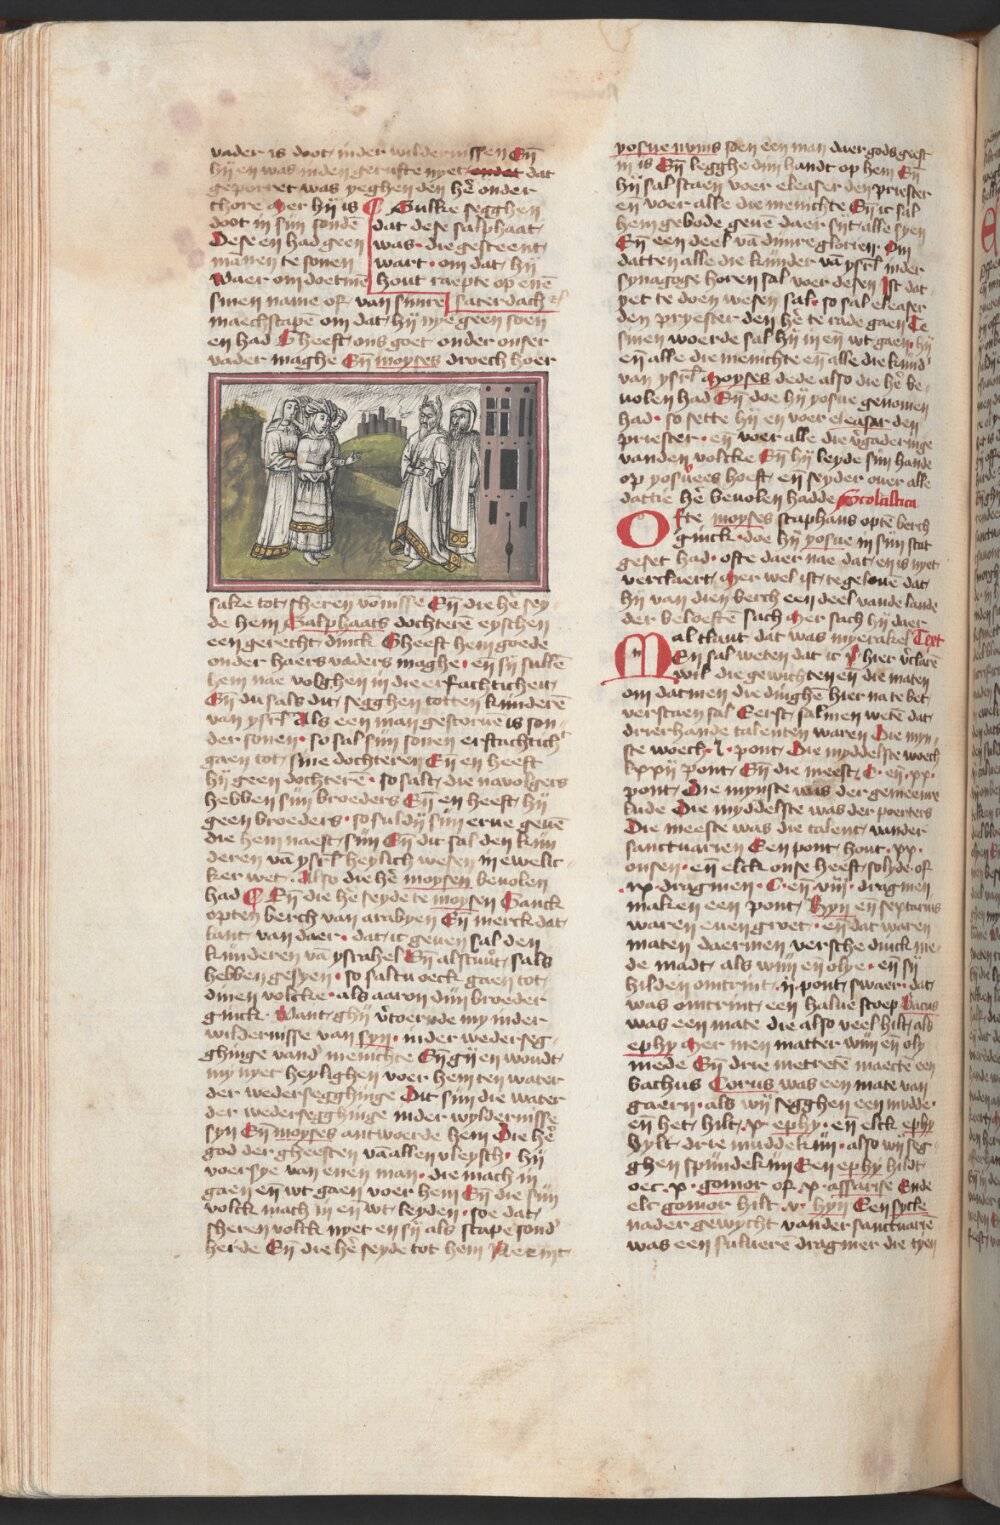 vader is doot inder wildernissen Eñ
hij en was inden gerufte nyet ondat dat
geporret was yeghen den hẽ onder
thore Mer hij is
doot in sijn sonden
Dese en had geen
mãnen te sonen
Waer om doetmẽ
sinen name of van sinre
Sulke segghen
dat dese salphaat
was die gesteent
wart om dat hij
hout raepte op enẽ
saterdach
maechscape om dat hij nye geen soen
en had Gheeft ons goet onder onser
vader maghe Eñ moyses droech hoer
sake tot sheren võnisse Eñ die hẽ sey
de hem Salphaats dochterẽ eyschen
een gerecht dinck Gheeft hem goede
onder haers vaders maghe eñ sij sullẽ
hem nae volghen in die erfachticheit
Eñ du salt dit segghen totten kinderẽ
van ysrl̃ Als een man gestorue is son
der sonen so sal sijn sonen erftachtich
gaen tot sine dochteren Eñ en heeft
hij geen dochterẽ so salt die navolgers
hebben sijn broeders Eñ en heeft hij
geen broeders so suldij sijn erue geuẽ
die hem naest sijn Eñ dit sal den kin
deren vã ysrl̃ heylich wesen in ewelic
ker wet Also die hẽ moysen beuolen
had Eñ die hẽ seyde te moysen Ganck
opten berch van arabyen Eñ merck dat
lant van daer dat ic geuen sal den
kinderen vã ysrahel Eñ alstuut sals
hebben gesyen so saltu oeck gaen tot
dinen volcke als aaron dijn broeder
ginck Want ghij v̾toernde my inder
wildernisse van syn inder wederseg
ghinge vand̾ menichte Eñ gij en woudt
my nyet heylighen voer hem ten water
der wedersegghinge Dit sijn die water
der wedersegghinge inder wyldernisse
syn Eñ moyses antwoerde hem Die hẽ
god der gheesten vã allen vleysch hij
voersye van enen man die mach in
gaen eñ wt gaen voer hem Eñ die sijn
volck mach in eñ wt leyden soe dat
sheren volck nyet en sij als scape sond̾
herde Eñ die hẽ seyde tot hem Neemt
yosue nuns soen een man daer gods geest
in is Eñ legghe dijn handt op hem Eñ
hij sal staen voer eleaser den priester
eñ voer alle die menichte Eñ ic sal
hem gebode geuẽ daer sijt alle syen
Eñ een deel vã dijnre glorien Om
dat ten alle die kijnder vã ysrl̃ inder
synagoge horen sal voer desen Ist dat
yet te doen wesen sal so sal eleaser
den pryester den hẽ te rade gaen Te
sinen woerde sal hij in eñ wt gaen hij
eñ alle die menichte eñ alle die kind̾
van ysrl̃ Moyses dede also die hẽ be
uolen had Eñ doe hij yosue genomen
had so sette hij en voer eleasar den
priester eñ voer alle die v̾gaderinge
vanden volcke Eñ hij leyde sijn hande
op yosuees hoeft eñ seyder ouer alle
dattie hẽ beuolen hadde Scolastica
Ofte moyses staphans optẽ berch
ginck doe hij yosue in sijn stat
geset had ofte daer nae dat en is nyet
verclaert Mer wel ist te gelouẽ dat
hij van dien berch een deel vande lande
der beloeftẽ sach Mer sach hij daer
al tlant dat was myrakel Text
MEn sal weten dat ic hier v̾clarẽ
wil die gewichten eñ die maten
om datmen die dinghẽ hier na te bet
verstaen sal Eerst salmen wetẽ dat
drierhande talenten waren Die myn
ste woech l pont Die myddelste woech
lxxij pont Eñ die meeste C eñ xx
pont Die mynste was der gemeenre
lude Die myddelste was der poerters
Die meeste was die talent vander
sanctuarien Een pont hout xx
onsen eñ elck onse heeft solyde of
dragmen C eñ viij dragmen
maken een pont Hyn eñ sextarius
waren euen groet eñ dat waren
maten daermen versche dinck me
de madt als wijn eñ olye eñ sij
hilden omtrint ij pont swaer dat
was omtrint een halue stoep Batus
was een mate die also veel hilt als
ephy Mer men matter wijn eñ oly
mede Eñ drie metretẽ maecte een
bachus Corus was een mate van
gaern als wij segghen een mudde
eñ het hilt x ephy eñ elck ephy
hylt drie muddekijn also wij seg
ghen spijndekijn Een ephy hildt
oec x gomor of x assarise Ende
elc gomor hilt v hyn Een sycle
nader gewycht vander sanctuarie
was een suluerẽ dragmer die tyen